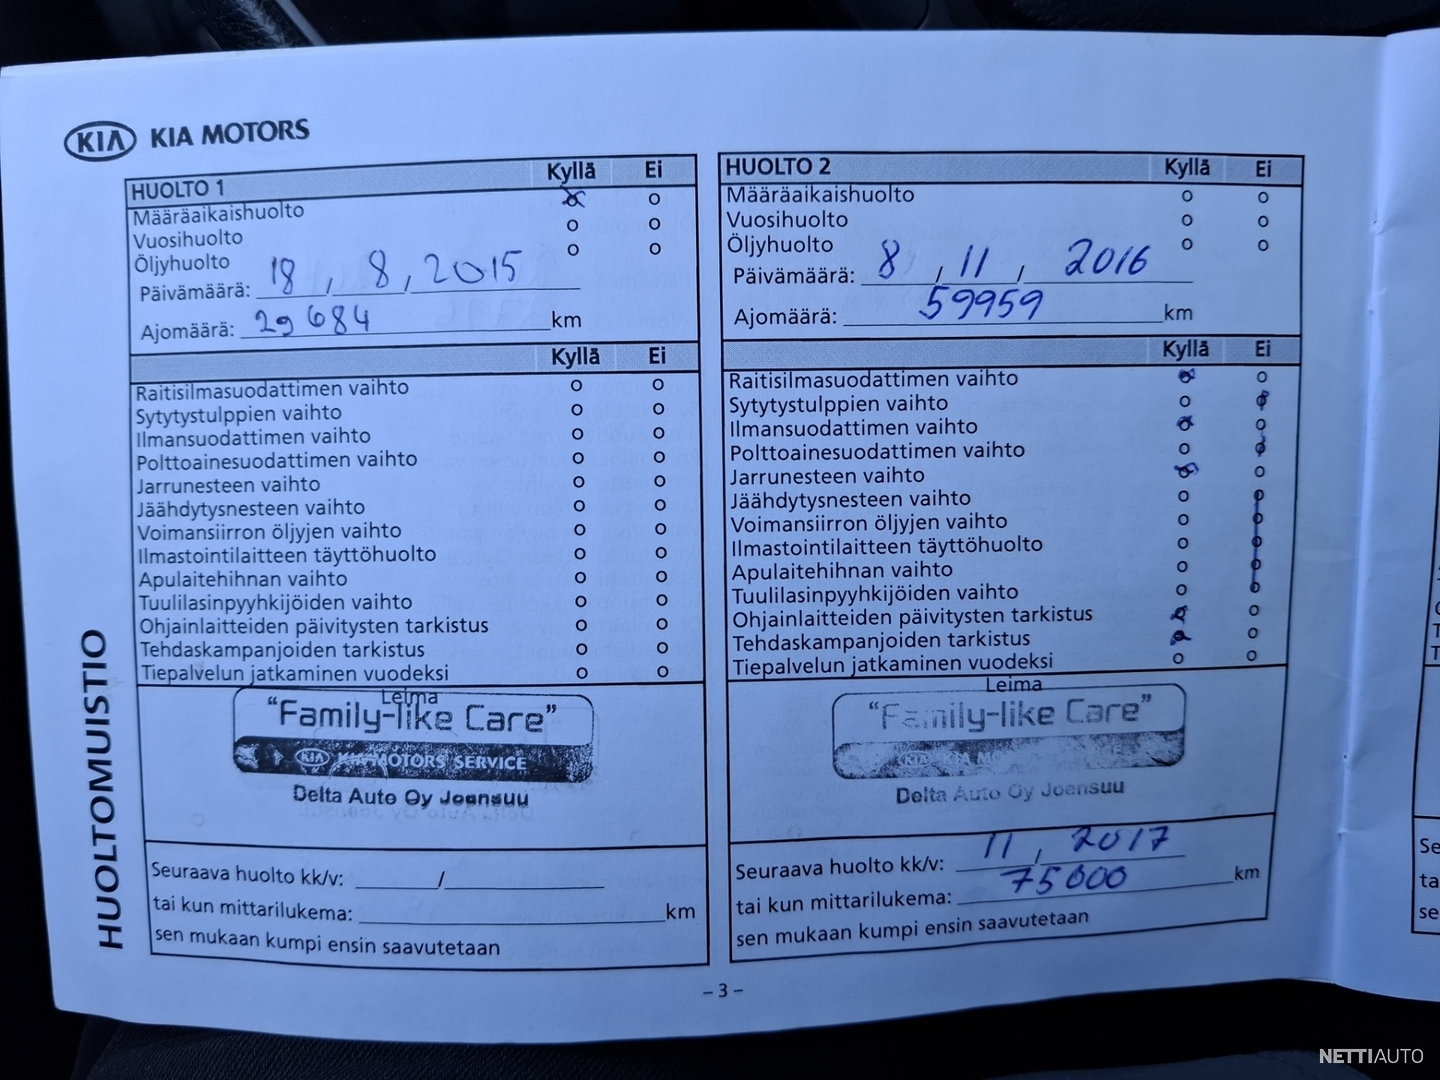 KIA KIA MOTORS
HUOLTO 1 Kyllä Ei
Määräaikaishuolto
Vuosihuolto
Öljyhuolto
Päivämäärä: 18, 8, 2015
Ajomäärä: 29684 km
Kyllä Ei
Raitisilmasuodattimen vaihto
Sytytystulppien vaihto
Ilmansuodattimen vaihto
Polttoainesuodattimen vaihto
Jarrunesteen vaihto
Jäähdytysnesteen vaihto
Voimansiirron öljyjen vaihto
Ilmastointilaitteen täyttöhuolto
Apulaitehihnan vaihto
Tuulilasinpyyhkijöiden vaihto
Ohjainlaitteiden päivitysten tarkistus
Tehdaskampanjoiden tarkistus
Tiepalvelun jatkaminen vuodeksi
Leima
"Family-like Care"
KIA KIA MOTORS SERVICE
Delta Auto Oy Joensuu
Seuraava huolto kk/v: /
tai kun mittarilukema: km
sen mukaan kumpi ensin saavutetaan
HUOLTO 2 Kyllä Ei
Määräaikaishuolto
Vuosihuolto
Öljyhuolto
Päivämäärä: 8 / 11 / 2016
Ajomäärä: 59959 km
Kyllä Ei
Raitisilmasuodattimen vaihto
Sytytystulppien vaihto
Ilmansuodattimen vaihto
Polttoainesuodattimen vaihto
Jarrunesteen vaihto
Jäähdytysnesteen vaihto
Voimansiirron öljyjen vaihto
Ilmastointilaitteen täyttöhuolto
Apulaitehihnan vaihto
Tuulilasinpyyhkijöiden vaihto
Ohjainlaitteiden päivitysten tarkistus
Tehdaskampanjoiden tarkistus
Tiepalvelun jatkaminen vuodeksi
Leima
"Family-like Care"
KIA KIA
Delta Auto Oy Joensuu
Seuraava huolto kk/v: 11, 2017
tai kun mittarilukema: 75000 km
sen mukaan kumpi ensin saavutetaan
HUOLTOMUISTIO
– 3 –
Se
ta
se
NETTIAUTO